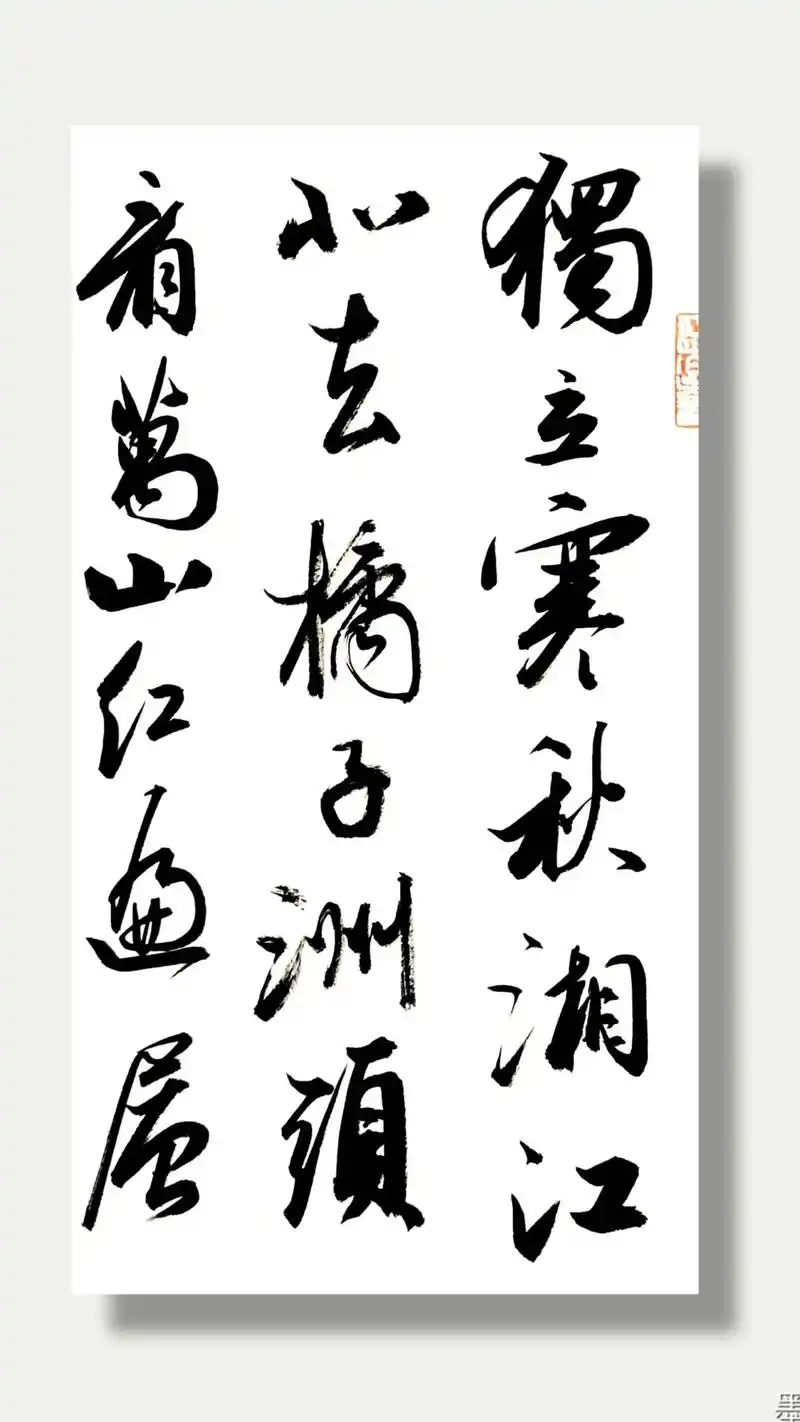 獨立寒秋湘江
北去橘子洲頭
看萬山红遍層
墨